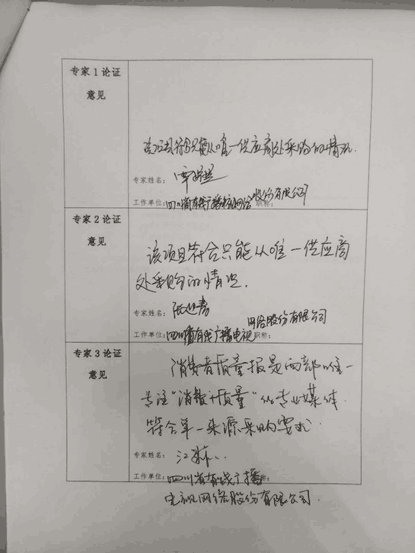 专家1论证
意见
该项目符合只能从唯一供应商处采购的情况.
专家姓名:
工作单位:四川省有线广播电视网络股份有限公司 职称:
专家2论证
意见
该项目符合只能从唯一供应商
处采购的情况.
专家姓名:
网络股份有限公司
工作单位:四川省有线广播电视 职称:
专家3论证
意见
消费者质量报是西部唯一
专注“消费+质量”的专业媒体
符合单一来源采购要求
专家姓名:江
工作单位:
四川省有线广播
电视网络股份有限公司.